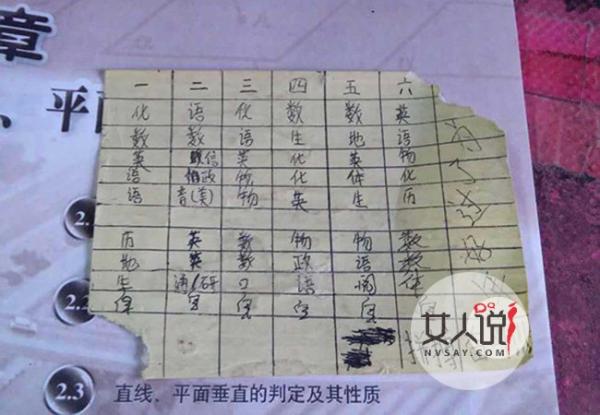 章
、平
一 二 三 四 五 六
化 语 化 数 数 英
数 数 语 生 地 语
英 信 英 化 英 物
语 政 物 化 体 化
语 音(美) 物 英 生 历
历 英 数 物 物 数
地 英 数 政 语 数
生 通/研 口 语 阅 体
自 自 自 自
2.
2.2
2.3 直线、平面垂直的判定及其性质
女人说
NVSAY.COM